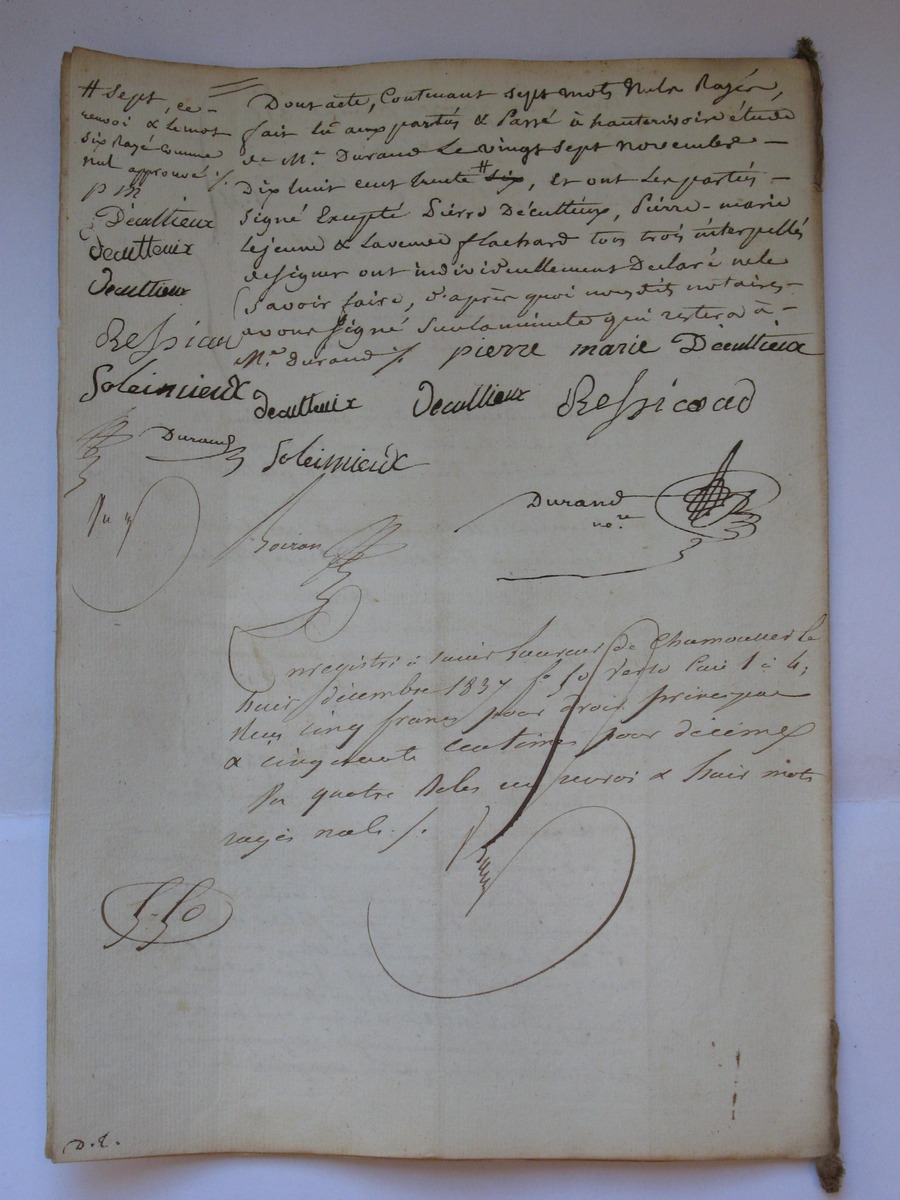 # Sept, ce
renvoi & le mot
six Rayé comme
nul approuvé ./.
p m
Décultieux
decultieux
Decultieux
Ressicaud
Soleimieux
Durand
Dont acte, Contenant sept mots Nuls Rayés,
fait lu aux partiés & Passé à hauterivoire étude
de Me. Durand Le vingt sept novembre —
Dix huit cent trente # six, Et ont Les partiés –
Signé Excepté Pierre Décultieux, Pierre-marie
Lejeune & Laveuve flachard tous trois interpellés
designer ont individuellement Declaré nele
Savoir faire, d'après quoi nousdits notaires –
avons Signé Surlaminute qui restera à –
Me. Durand ./. pierre marie Décultieux
decultieux Decultieux Ressicaud
Soleimieux
Durand
nore.
Boiron
Enregistré à Saint Laurent de Chamousset le
huit décembre 1837 fo 50 verso Case 1 à 4,
Reçu cinq francs pour droit principal
& cinquante centimes pour décimes
Vu quatre Roles un renvoi & huit mots
rayés nuls ./.
D.E.